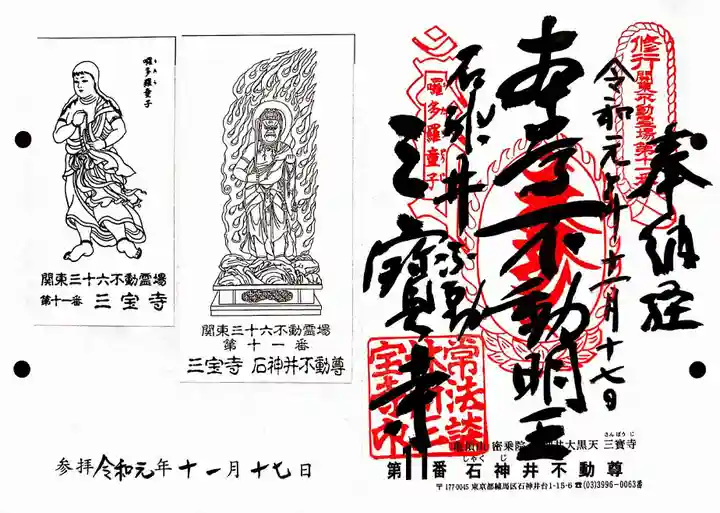 囉多羅童子
関東三十六不動霊場
第十一番 三宝寺
関東三十六不動霊場
第十一番
三宝寺 石神井不動尊
参拝 令和元年十一月十七日
奉納経
修行 関東不動霊場第十一番
令和元年十一月十七日
本尊不動明王
囉多羅童子
石神井不動
三寶寺
常法談
密乗院 井大黒天 三寶寺
さんぽうじ
第11番 石神井不動尊
しゃくじ
〒177-0045 東京都練馬区石神井台1-15-6 ☎(03)3996-0063番